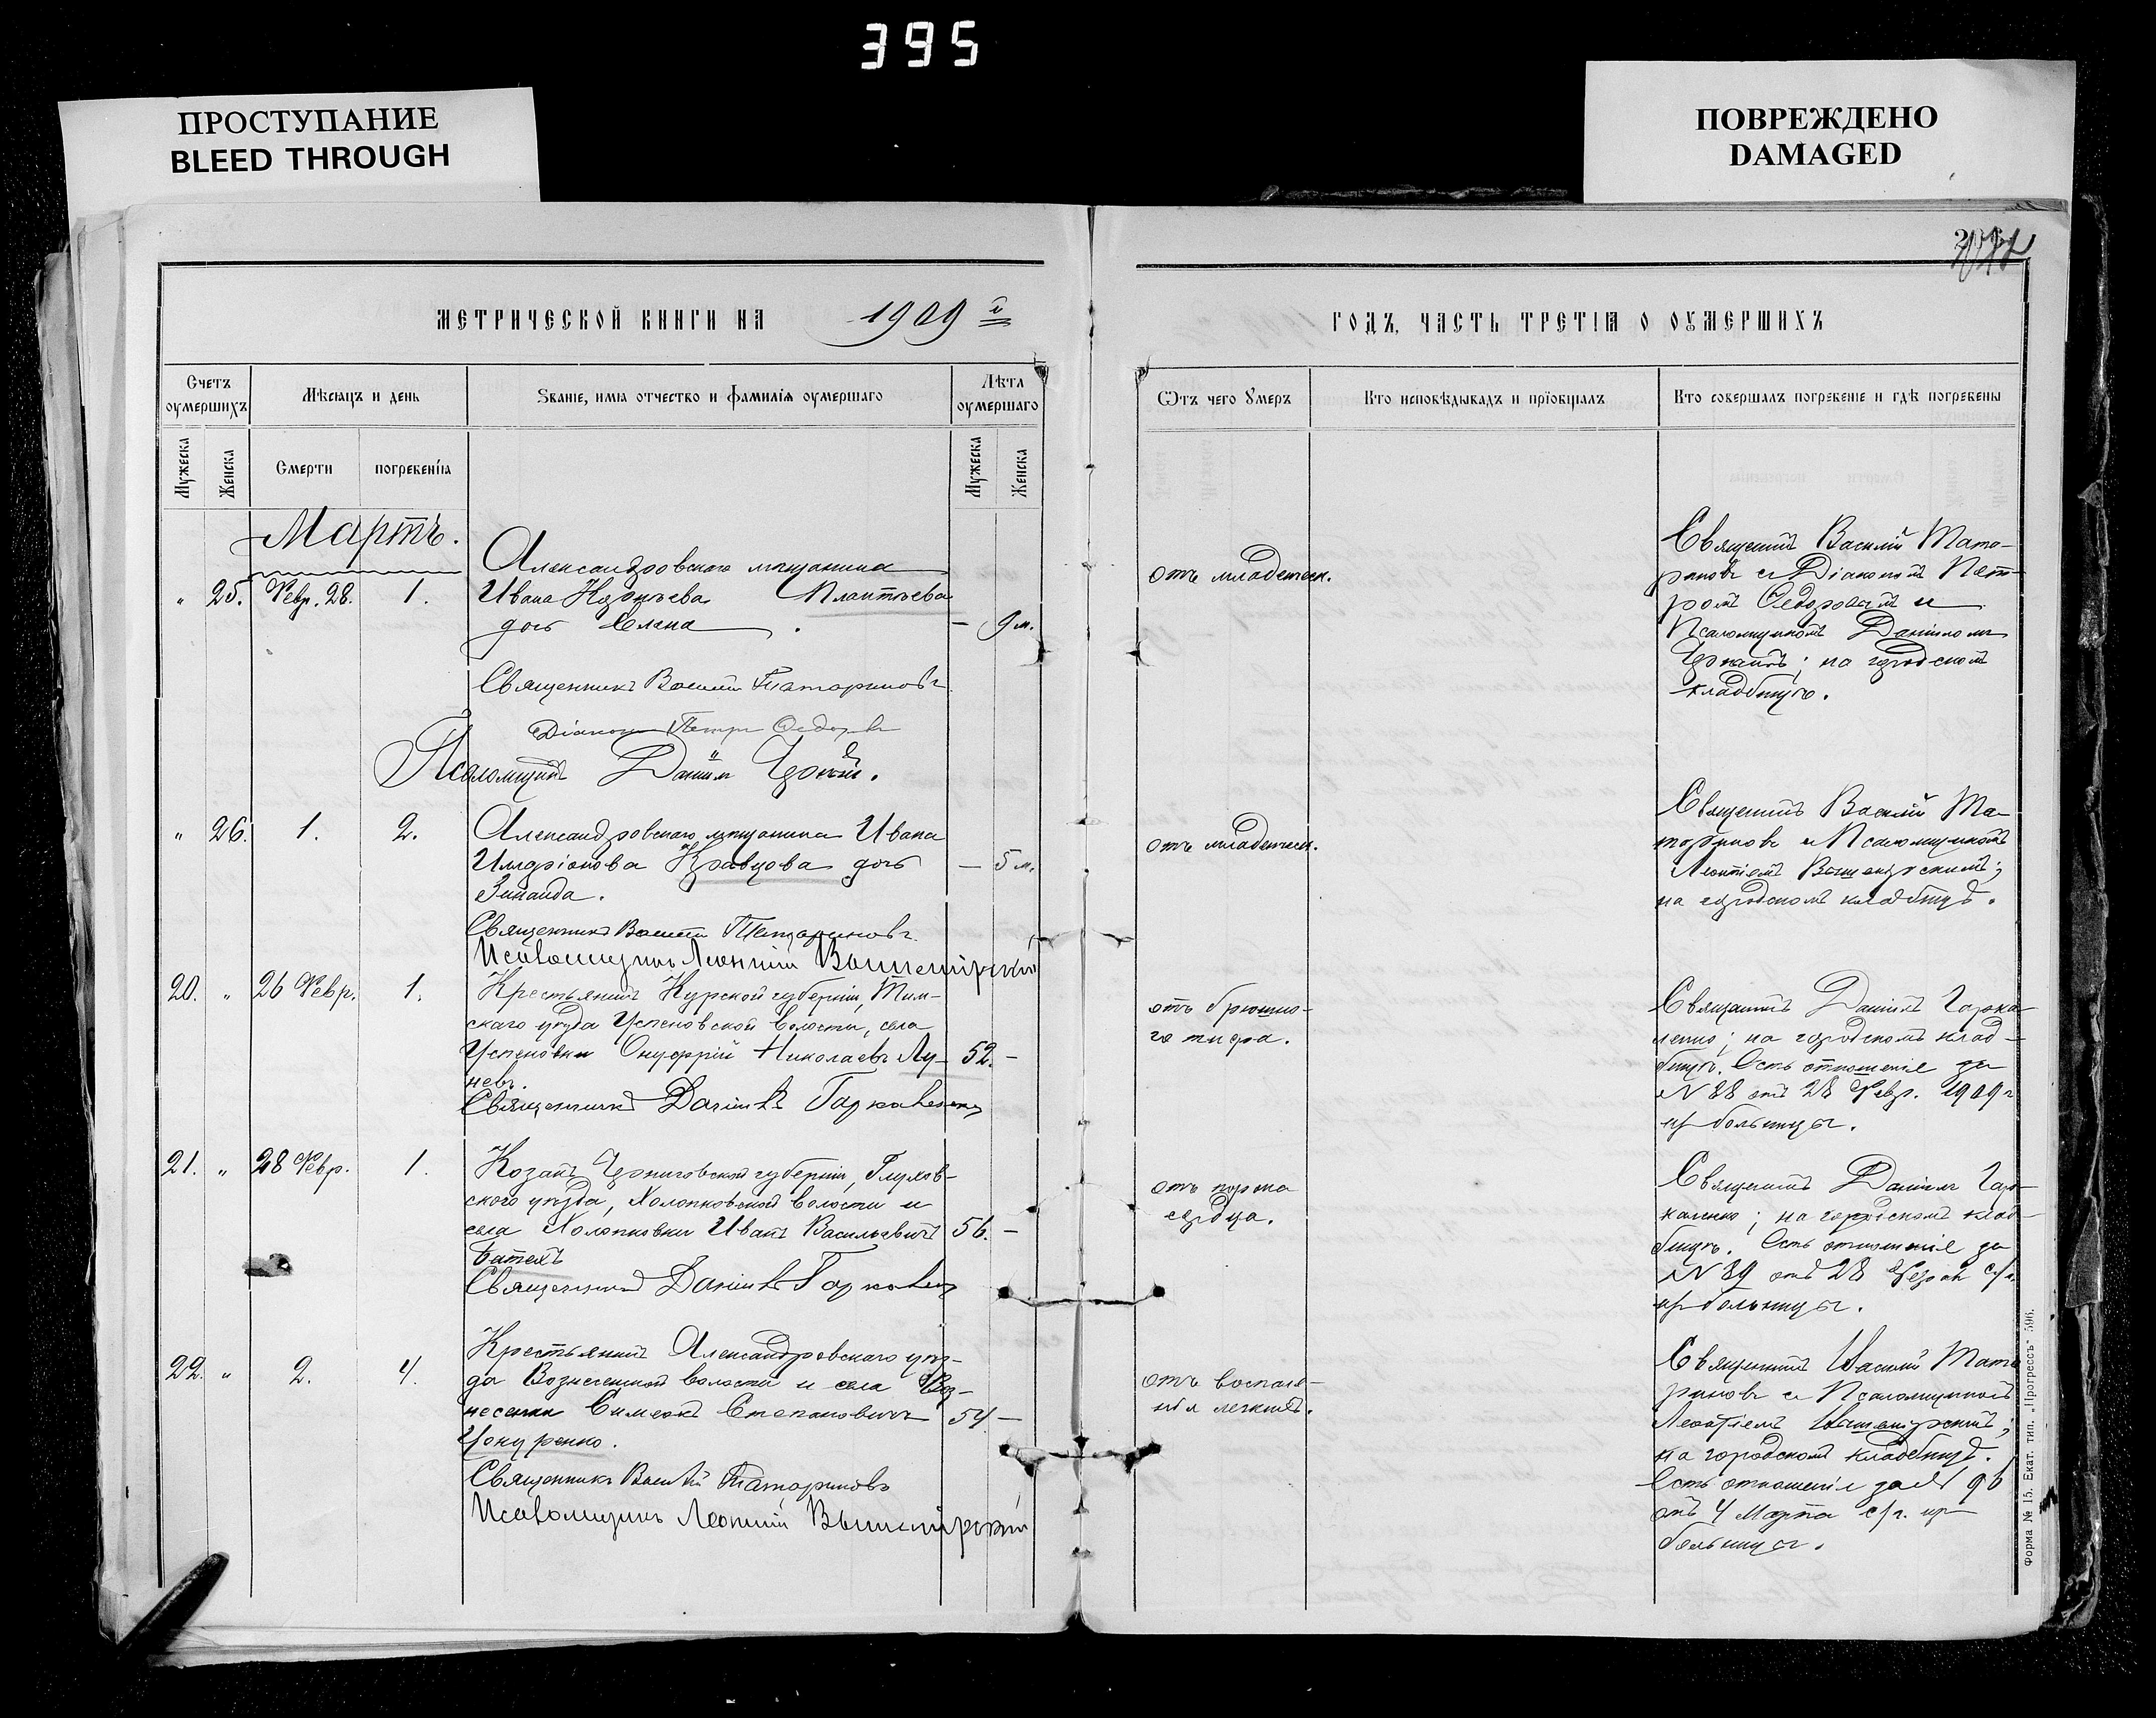 395
ПРОСТУПАНИЕ
BLEED THROUGH
ПОВРЕЖДЕНО
DAMAGED
МЕТРИЧЕСКОЙ КНИГИ НА 1909 г
ГОДЪ, ЧАСТЬ ТРЕТІЯ О ОУМЕРШИХЪ
Счетъ оумершихъ
Мѣсяцъ и день
Званіе, имя отчество и фамилія оумершаго
Лѣта оумершаго
Отъ чего Умеръ
Кто исповѣдывалъ и пріобщалъ
Кто совершалъ погребеніе и гдѣ погребены
Мужеска
Женска
Смерти
погребенія
Мужеска
Женска
Мартъ.
" 25. Февр. 28. 1.
Александровскаго мѣщанина
Ивана
дочь Елена — 9 м.
отъ младенческ.
Священникъ Василій Тата-
риновъ съ Діакономъ Пет-
ромъ Ѳедоровымъ и
Псаломщикомъ Даніиломъ
на городскомъ
кладбищѣ.
Священникъ Василій Татариновъ
Діаконъ Петръ Ѳедоровъ
Псаломщикъ Даніилъ
" 26. 1. 2.
Александровскаго мѣщанина Ивана
Иларіонова Кравцова дочь — 5 м.
Зинаида.
отъ младенческ.
Священникъ Василій Та-
тариновъ и Псаломщикъ
Леонтіемъ Вышемірскимъ;
на городскомъ кладбищѣ.
Священникъ Василій Татариновъ.
Псаломщикъ Леонтій Вышемірскій
20. " 26 Февр. 1.
Крестьянинъ Курской губерніи, Тим-
скаго уѣзда Успеновской волости, села
Успеновки Онуфрій Николаевъ Лу- 52. —
невъ.
отъ брюшно-
го тифа.
Священникъ Даніилъ Гарка-
ленко; на городскомъ клад-
бищѣ. Есть отношеніе за
N 88 отъ 28 Февр. 1909 г
изъ больницы.
Священникъ Даніилъ
21. " 28 Февр. 1.
Козакъ Черниговской губерніи, Глухов-
ского уѣзда, Холопковской волости и
села Холопковки Иванъ Васильевичъ 56. —
отъ порока
сердца.
Священникъ Даніилъ Гар-
каленко; на городскомъ клад-
бищѣ. Есть отношеніе за
N 89 отъ 28 Февр. с/г.
изъ больницы.
Священникъ Даніилъ
22. " 2. 4.
Крестьянинъ Александровскаго уѣз-
да Вознесенской волости и села Воз-
несенки Симеонъ Степановичъ 54 —
отъ воспале-
нія легкихъ.
Священникъ Василій Тата-
риновъ съ Псаломщикомъ
Леонтіемъ Вышемірскимъ;
на городскомъ кладбищѣ.
Есть отношеніе за N 96
отъ 4 Марта с/г. изъ
больницы.
Священникъ Василій Татариновъ
Псаломщикъ Леонтій Вышемірскій
Форма № 15. Екат. тип. „Прогрессъ" 596.